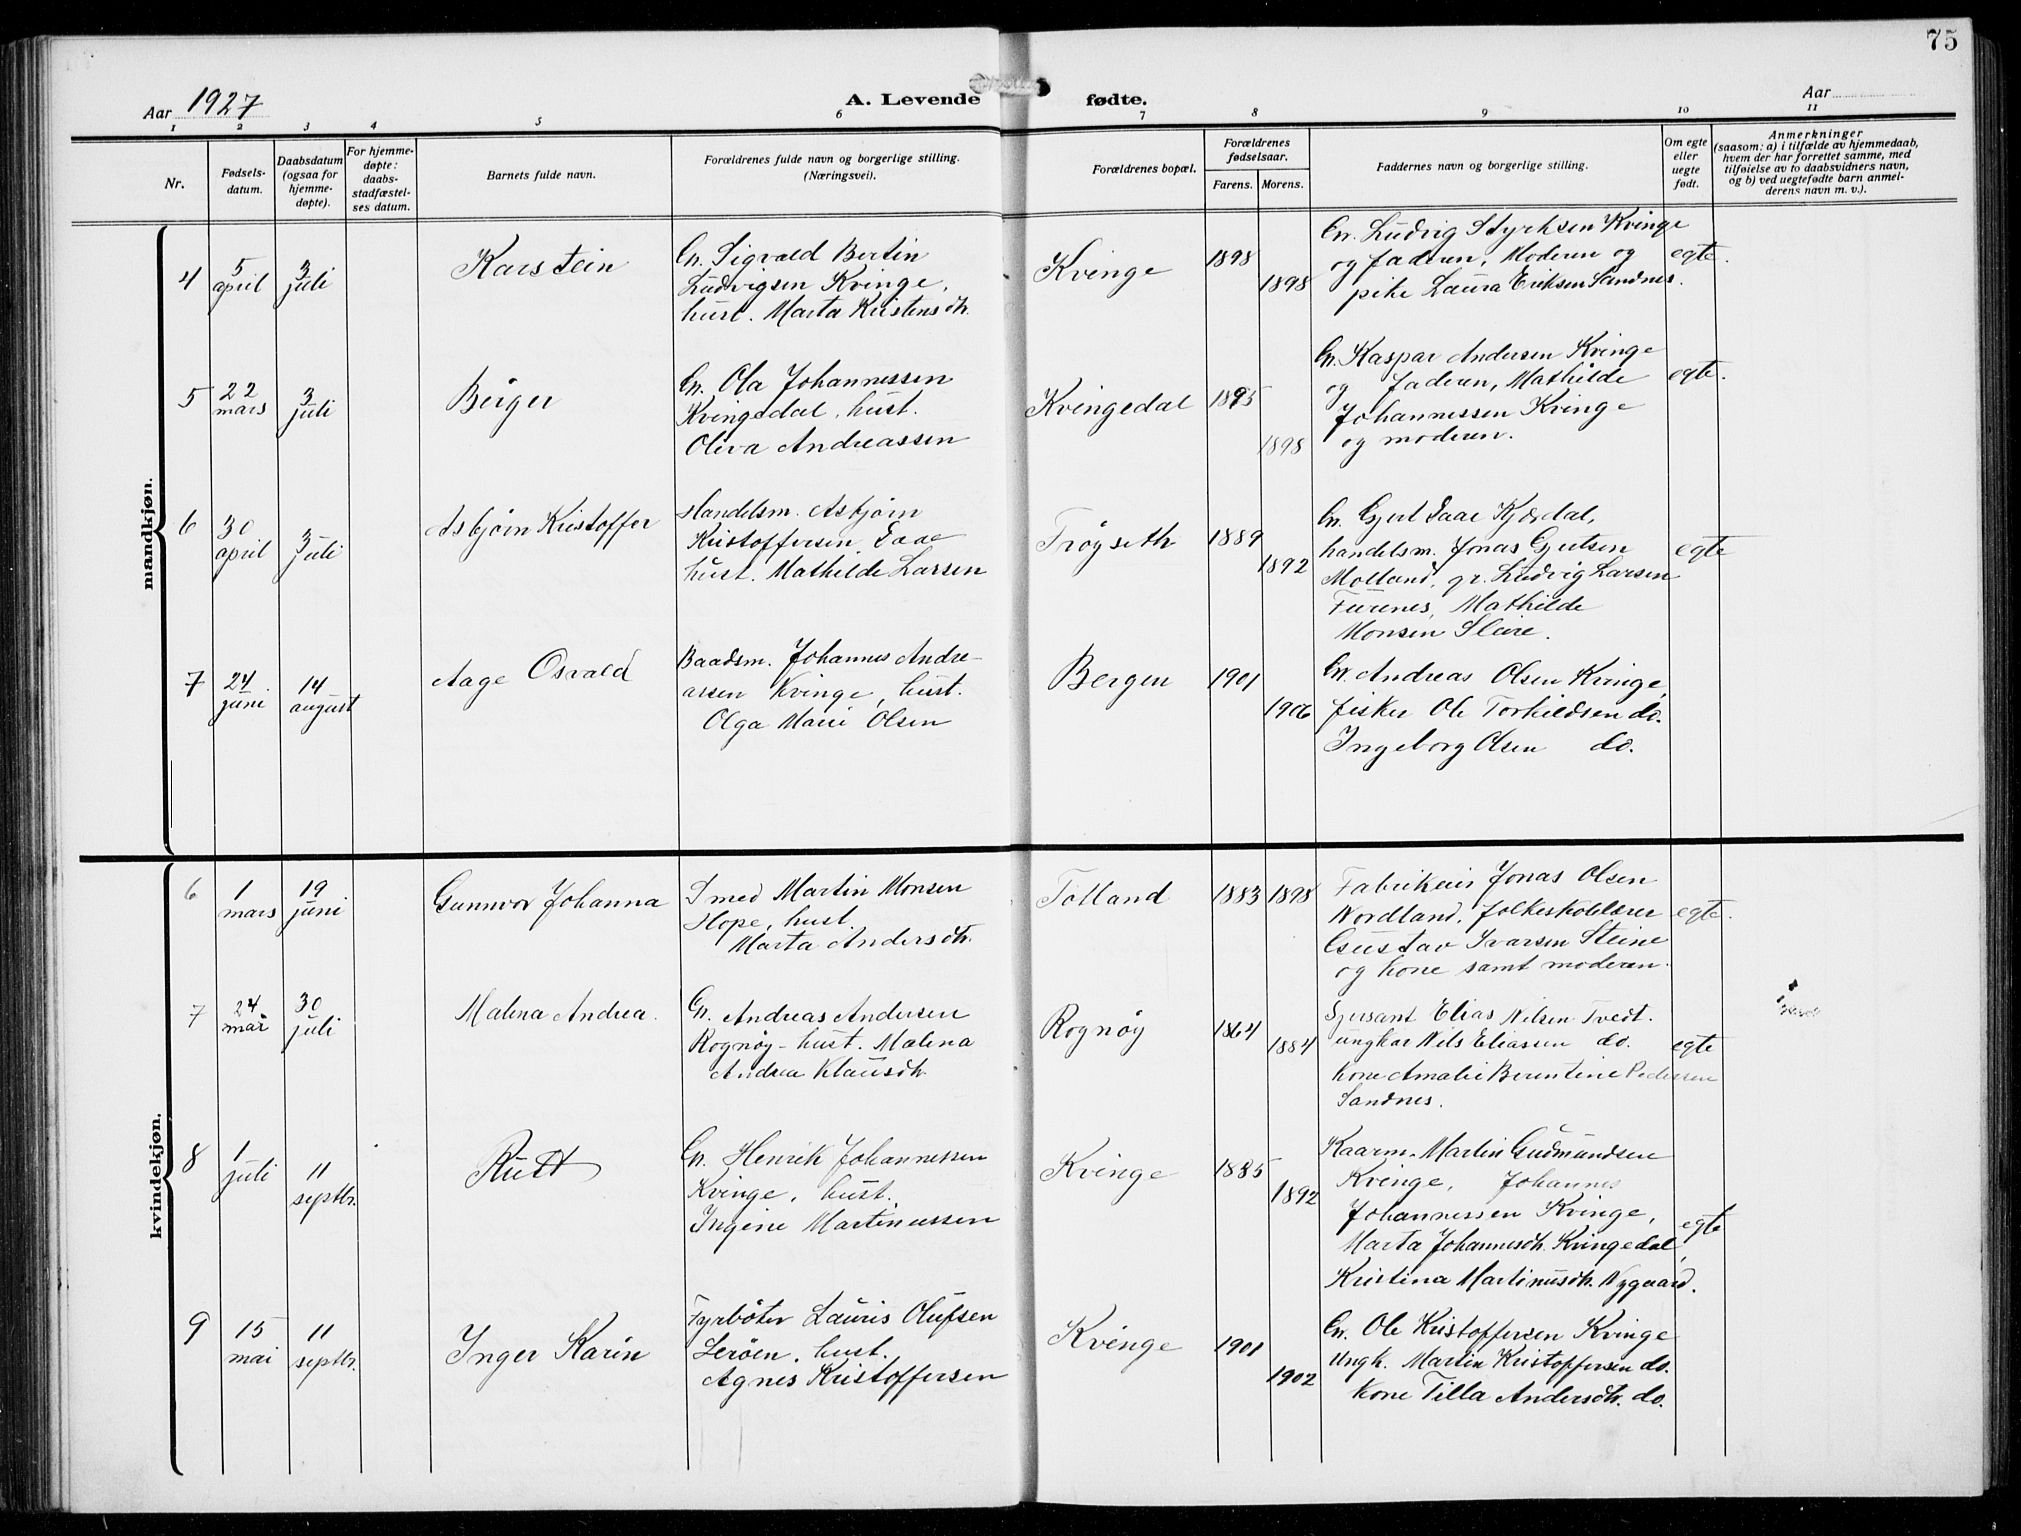 75
Aar 1927
A. Levende fødte.
Aar
1 2 3 4 5 6 7 8 9 10 11
Nr.
Fødsels-
datum.
Daabsdatum
(ogsaa for
hjemme-
døpte).
For hjemme-
døpte:
daabs-
stadfæstel-
ses datum.
Barnets fulde navn.
Forældrenes fulde navn og borgerlige stilling.
(Næringsvei).
Forældrenes bopæl.
Forældrenes
fødselsaar.
Farens. Morens.
Faddernes navn og borgerlige stilling.
Om egte
eller
uegte
født.
Anmerkninger
(saasom: a) i tilfælde av hjemmedaab,
hvem der har forrettet samme, med
tilføielse av to daabsvidners navn,
og b) ved uegtefødte barn anmel-
derens navn m. v.).
mandkjøn.
4
5
april
3
juli
Karstein
Gr. Sigvald Bertin
Ludvigsen Kvinge,
hust. Marta Kristensdtr.
Kvinge
1898
1898
Gr. Ludvig Styrksen Kvinge
og faderen, Moderen og
pike Laura Eriksen Sandnes.
egte.
5
22
mars
3
juli
Birger
Gr. Ola Johannessen
Kvingedal, hust.
Oliva Andreassen
Kvingedal
1895
1898
Gr. Kaspar Andersen Kvinge
og faderen, Mathilde
Johannessen Kvinge
og moderen.
egte.
6
30
april
3
juli
Asbjørn Kristoffer
Handelsm. Asbjørn
Kristoffersen
hust. Mathilde Larsen
Trøyseth
1889
1892
Gr. Gjert
handelsm. Jonas Gjertsen
Molland, gr. Ludvig Larsen
Furenes, Mathilde
Monsen Sleire.
egte
7
24
juni
14
august
Aage Osvald
Baadsm. Johannes Andre-
assen Kvinge, hust.
Olga Marie Olsen
Bergen
1901
1906
Gr. Andreas Olsen Kvinge,
fisker Ole Torkildsen do.
Ingeborg Olsen do.
kvindekjøn.
6
1
mars
19
juni
Gunnvor Johanna
Smed Martin Monsen
Hope, hust.
Marta Andersdtr.
Tolland
1883
1898
Fabrikeier Jonas Olsen
Nordland, folkeskolelærer
Gustav Ivarsen Steine
og kone samt moderen.
egte.
7
24
mai
30
juli
Malena Andrea.
Gr. Andreas Andersen
Rognøy - hust. Malena
Andrea Klausdtr.
Rognøy
1864
1884
Sersant Elias Nilsen Tvedt.
ungkar Nils Eliassen do.
kone Amalie Berentine Pedersen
Sandnes.
egte
8
1
juli
11
septbr.
Rutt
Gr. Henrik Johannessen
Kvinge, hust.
Ingine Martinussen
Kvinge
1885
1892
Kaarm. Martin Gudmundsen
Kvinge, Johannes
Johannessen Kvinge,
Marta Johannesdtr. Kvingedal
Kristina Martinusdtr. Nygaard.
egte
9
15
mai
11
septbr.
Inger Karin
Fyrbøter Lauris Olufsen
Lerøen, hust.
Agnes Kristoffersen
Kvinge
1901
1902
Gr. Ole Kristoffersen Kvinge
Ungk. Martin Kristoffersen do.
kone Tilla Andersdtr. do.